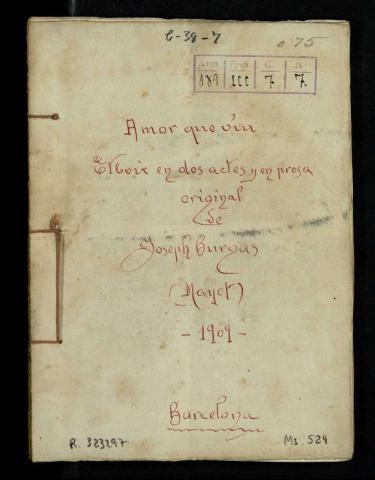 C-38-7
0'75
Arm Pres. C. N.
189 III 7 7.
Amor que viu
Esboix en dos actes y en prosa
original
de
Joseph Burgas
(Mayol)
- 1909 -
Barcelona
R. 323297
Ms. 524